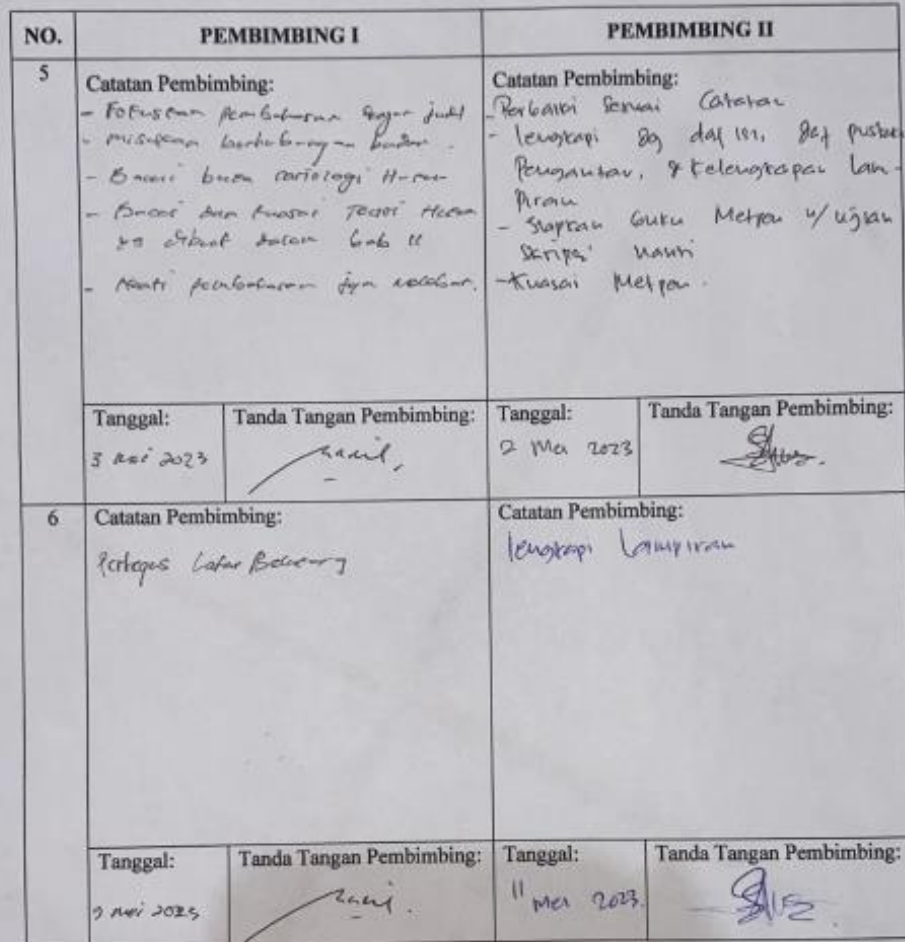 NO. PEMBIMBING I PEMBIMBING II
5
Catatan Pembimbing:
- Fokuskan pembahasan dengan judul
- misalkan berhubungan badan.
- Bacai buku sosiologi Hukum
- Bacai dan kuasai Teori Hukum
yg dibuat dalam bab II
- Nanti pembahasan jgn melebar.
Catatan Pembimbing:
- Perbaiki sesuai Catatan
- lengkapi dg daf isi, daf pustaka
Pengantar, & kelengkapan lam-
piran
- Siapkan buku Metpen u/ ujian
Skripsi nanti
- Kuasai Metpen.
Tanggal:
3 mei 2023
Tanda Tangan Pembimbing:
Tanggal:
2 Mei 2023
Tanda Tangan Pembimbing:
6
Catatan Pembimbing:
Pertegas Latar Belakang
Catatan Pembimbing:
lengkapi Lampiran
Tanggal:
9 mei 2023
Tanda Tangan Pembimbing:
Tanggal:
11 Mei 2023.
Tanda Tangan Pembimbing: